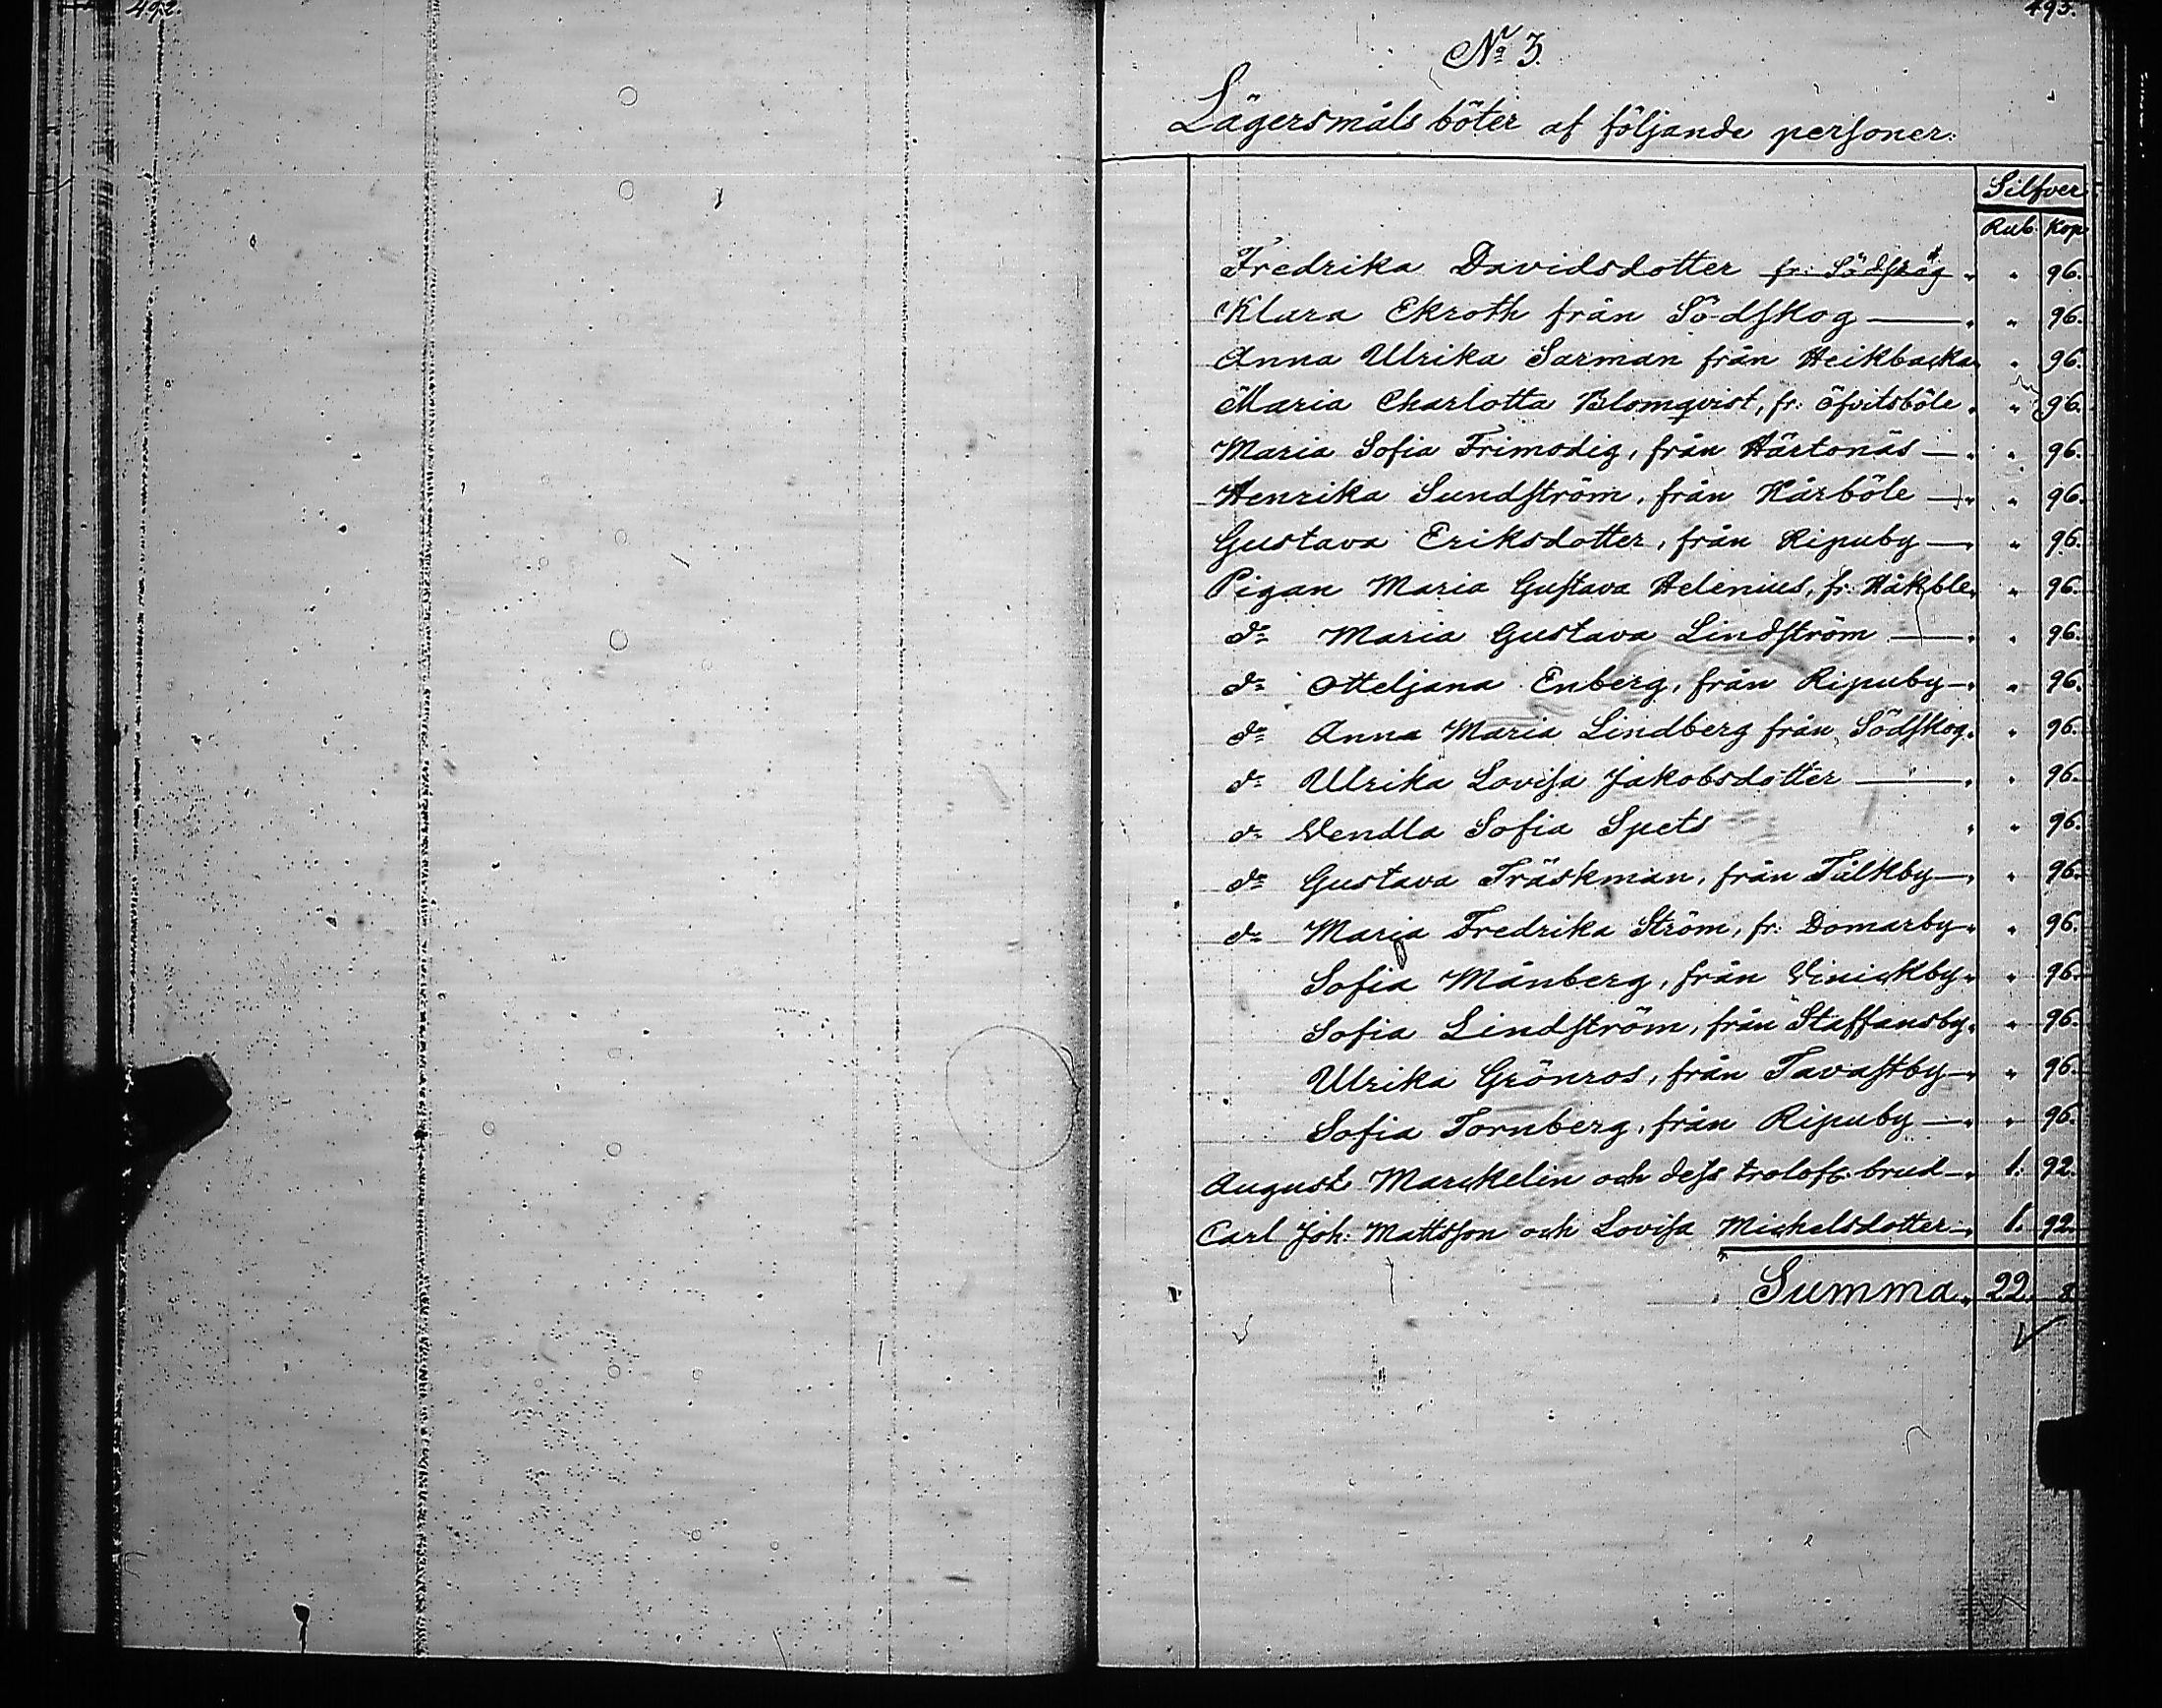 492.
493.
No 3.
Lägersmåls böter af följande personer:
Silfver
Rub. Kop.
Fredrika Davidsdotter fr: Södskog " 96.
Klara Ekroth från Södskog — " 96.
Anna Ulrika Sarman från Heikbacka " 96.
Maria Charlotta Blomqvist, fr: Öfvitsböle " 96.
Maria Sofia Frimodig, från Härtonäs — " 96.
Henrika Sundström, från Kårböle — " 96.
Gustava Eriksdotter, från Ripuby — " 96.
Pigan Maria Gustava Helenius, fr: Håkble " 96.
do Maria Gustava Lindström — " 96.
do Otteljana Enberg, från Ripuby — " 96.
do Anna Maria Lindberg från Södskog " 96.
do Ulrika Lovisa Jakobsdotter — " 96.
do Vendla Sofia Spets " 96.
do Gustava Träskman, från Tålkby — " 96.
do Maria Fredrika Ström, fr: Domarby " 96.
Sofia Månberg, från Vinickby " 96.
Sofia Lindström, från Staffansby " 96.
Ulrika Grönros, från Tavastby — " 96.
Sofia Tornberg, från Ripuby — " 96.
August Marckelin och dess trolofv. brud — 1. 92.
Carl Joh: Mattsson och Lovisa Mickelsdotter — 1. 92.
Summa 22. 8